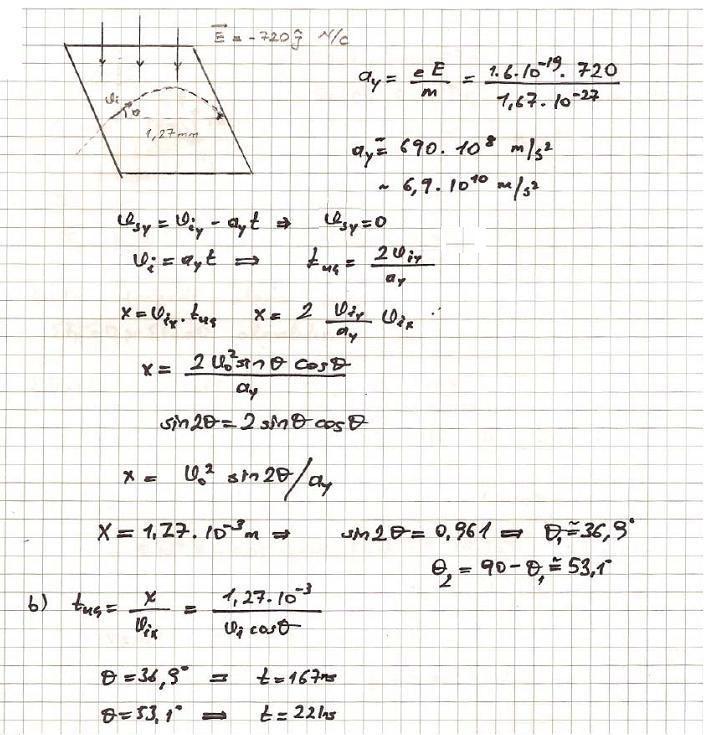 E⃗ = -720 ĵ N/C
a_y = eE/m = 1.6.10^-19. 720 / 1,67. 10^-27
υi θ
1,27mm
a_y = 690. 10^8 m/s²
~ 6,9. 10^10 m/s²
υ_sy = υ_iy - a_y t ⇒ υ_sy = 0
υ_i = a_y t ⇒ t_uç = 2υ_iy / a_y
x = υ_ix . t_uç x = 2 υ_iy/a_y υ_ix
x = 2υ₀² sinθ cosθ / a_y
sin2θ = 2 sinθ cosθ
x = υ₀² sin2θ / a_y
X = 1,27. 10^-3 m ⇒ sin2θ = 0,961 ⇒ θ₁ ≅ 36,9°
θ₂ = 90 - θ₁ ≅ 53,1°
b) t_uç = x/υ_ix = 1,27. 10^-3 / υ_i cosθ
θ = 36,9° ⇒ t = 167ns
θ = 53,1° ⇒ t = 221ns